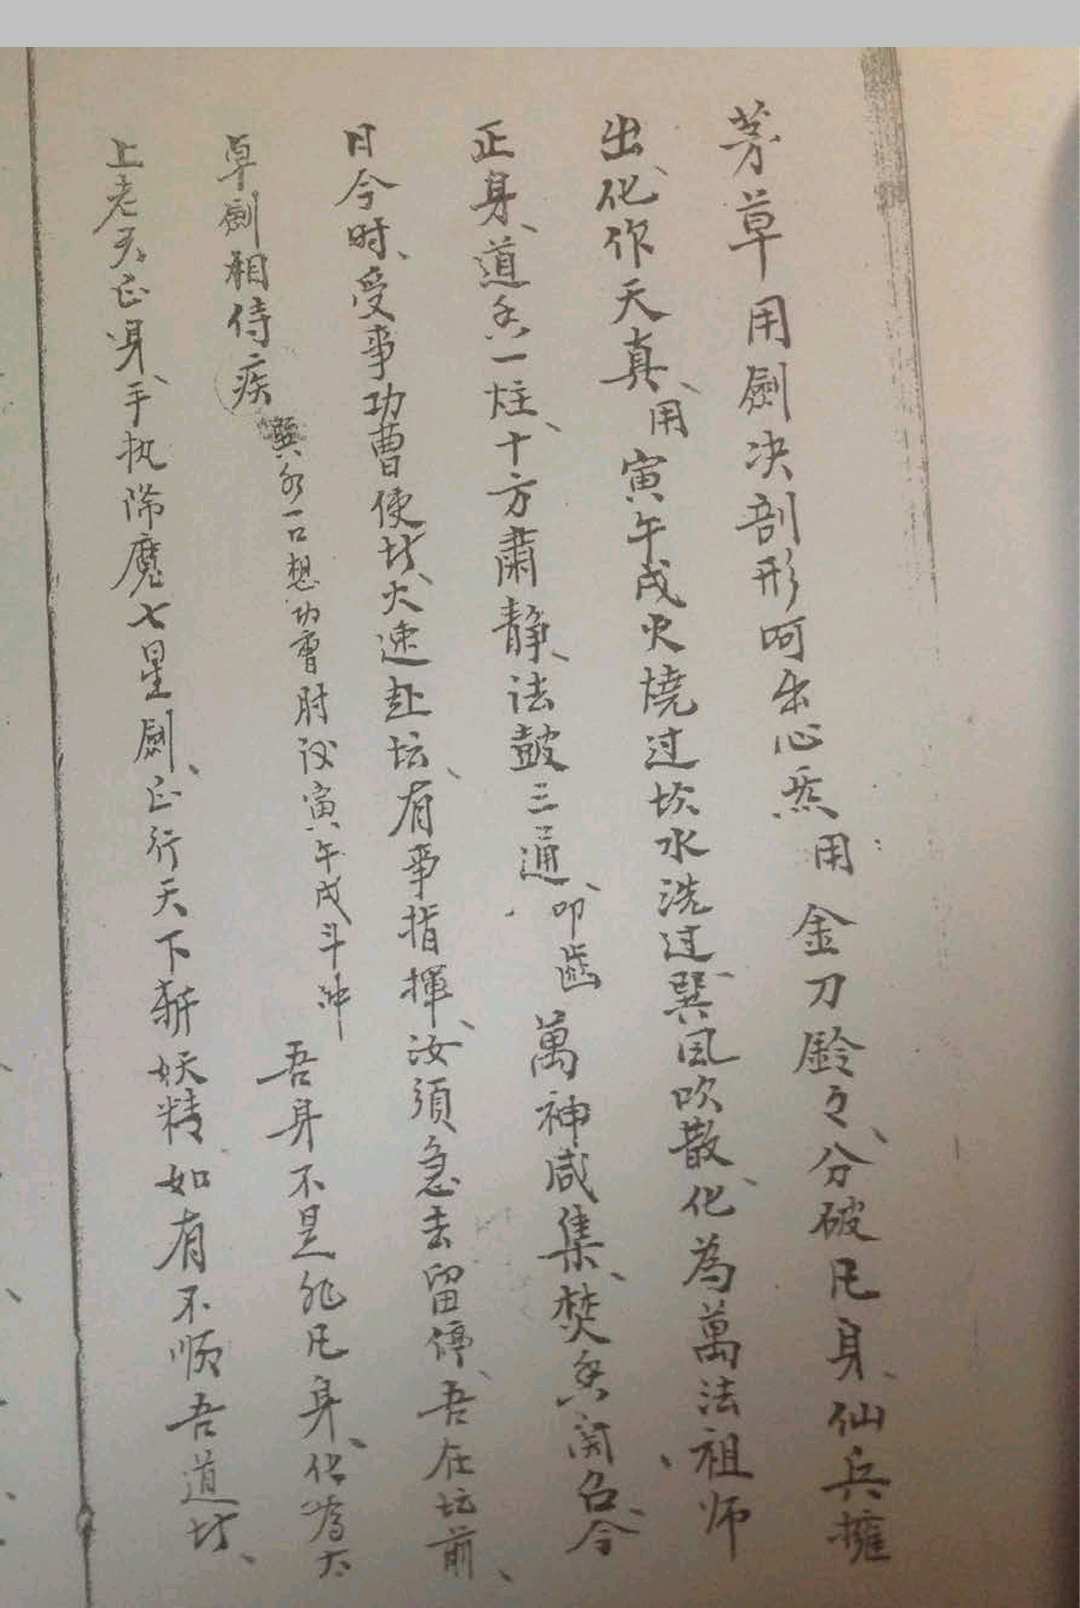 茅草用劍决剖形呵出心炁用金刀鈴々、分破凡身、仙兵擁
出、化作天真、用寅午戌火燒过坎水洗过巽風吹散、化為萬法祖师
正身、道香一炷、十方肅静、法鼓三通、叩齒萬神咸集、焚香開召、今
日今时、受事功曹使者、火速赴坛、有事指揮、汝須急去留停、吾在坛前、
卓劍相侍 疾 巽水一口想功曹肘 寅午戌斗冲 吾身不是非凡身、化為太
上老君正身、手执降魔七星劍、正行天下斬妖精、如有不順吾道者、